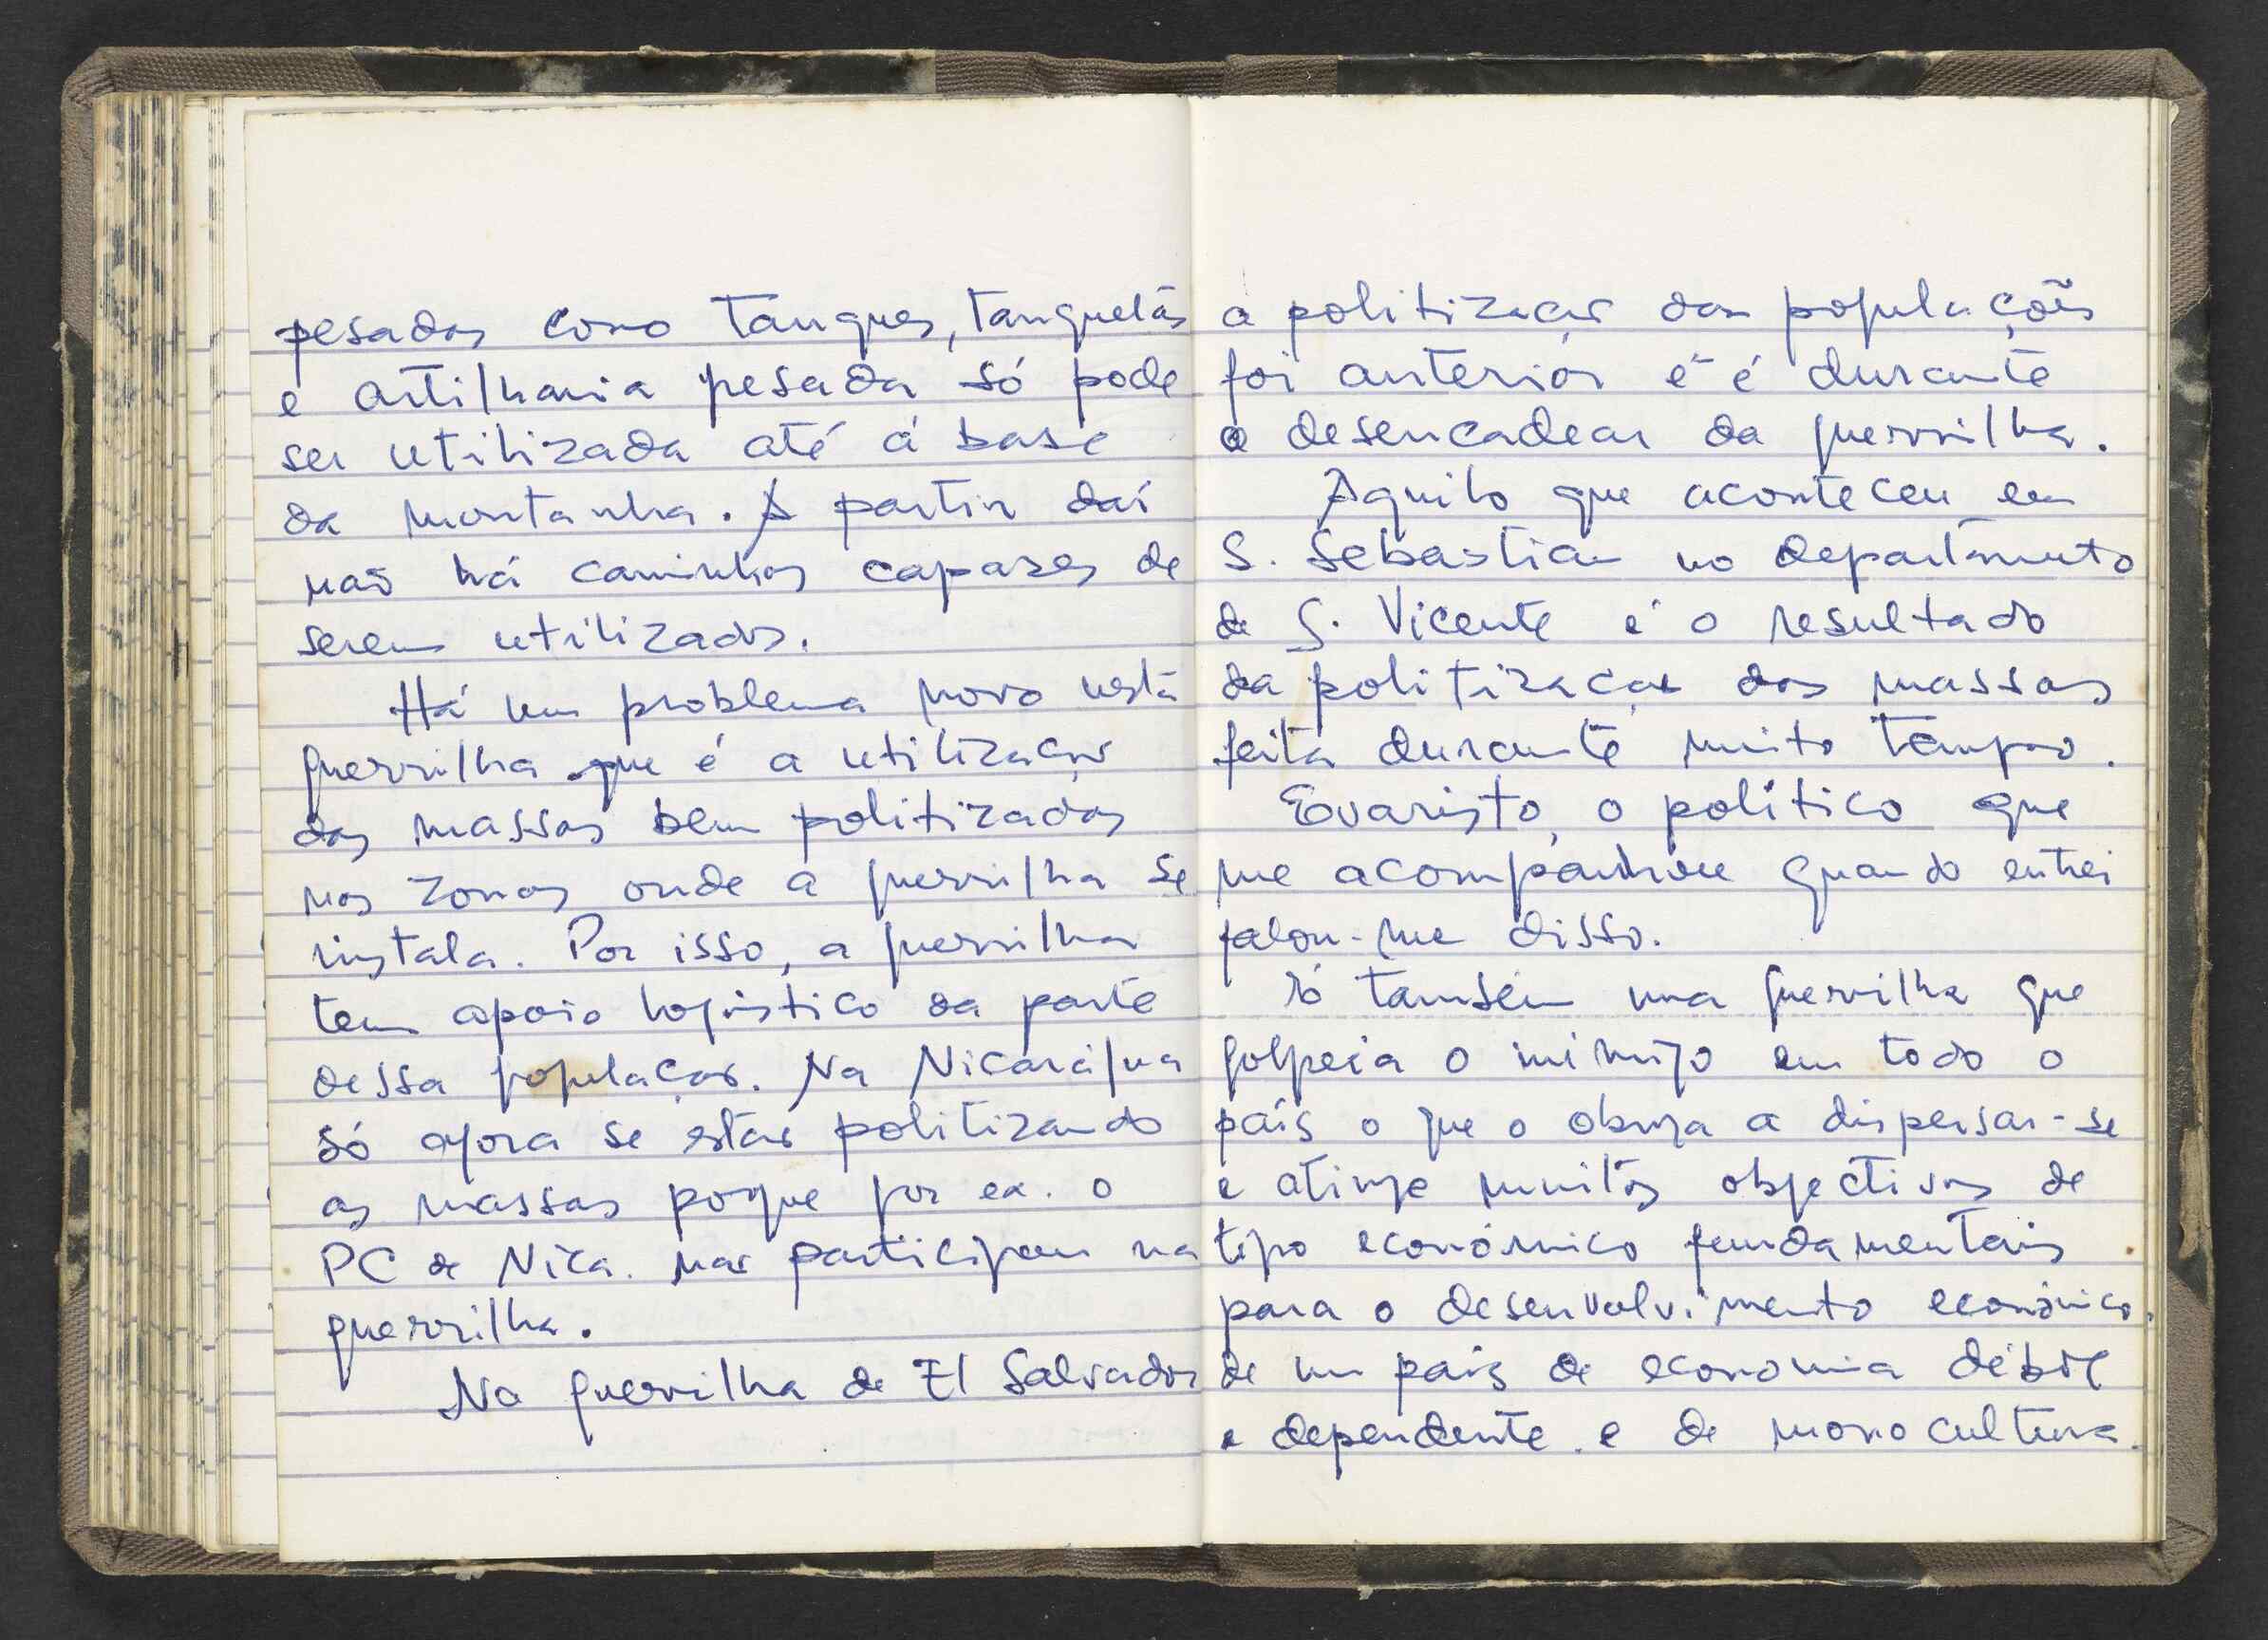 pesadas como tanques, tanquetas
e artilharia pesada só pode
ser utilizada até á base
da montanha. A partir daí
não há caminhos capazes de
serem utilizados.
Há um problema novo nesta
guerrilha que é a utilização
das massas bem politizadas
nas zonas onde a guerrilha se
instala. Por isso, a guerrilha
tem apoio logístico da parte
dessa população. Na Nicarágua
só agora se estão politizando
as massas poque por ex. o
PC de Nica. não participou na
guerrilha.
Na guerrilha de El Salvador
a politização das populações
foi anterior e é durante
o desencadear da guerrilha.
Aquilo que aconteceu em
S. Sebastian no departamento
de S. Vicente é o resultado
da politização das massas
feita durante muito tempo.
Evaristo, o político que
me acompanhou quando entrei
falou-me disso.
É também uma guerrilha que
golpeia o inimigo em todo o
país o que o obriga a dispersar-se
e atinge muitos objectivos de
tipo económico fundamentais
para o desenvolvimento económico.
de um país de economia débil
e dependente e de monocultura.